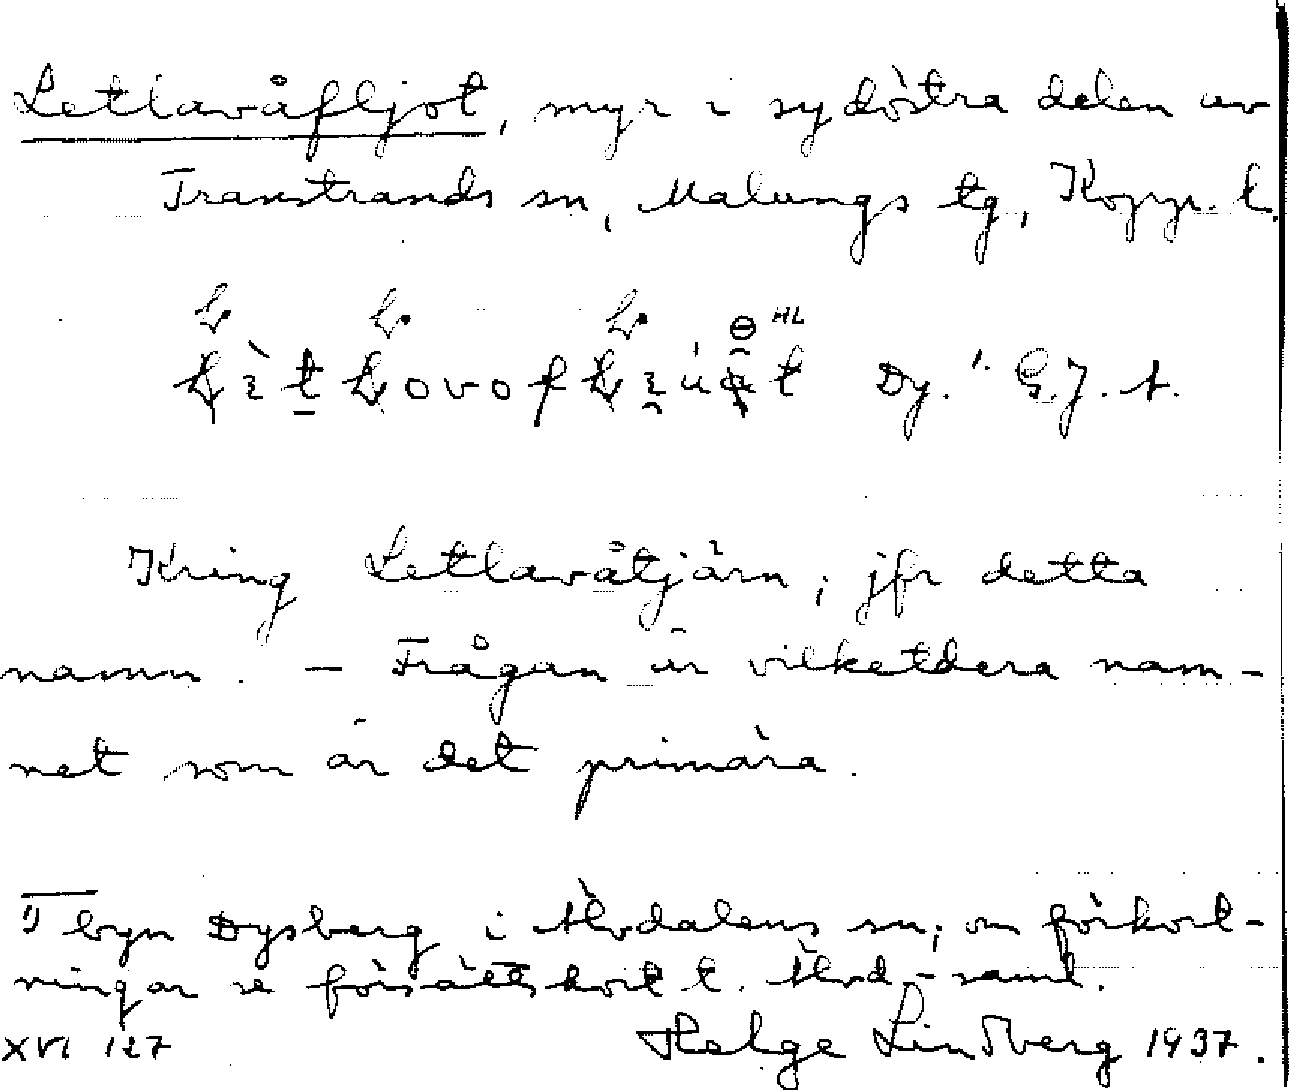 Letlavåfljot, myr i sydöstra delen av
Transtrands sn, Malungs tg, Kopp. l.
HL
Dy. ¹⁾ G.J. A.
Kring Letlavåtjärn; jfr detta
namn. — Frågan är vilketdera nam-
net som är det primära.
¹⁾ byn Dysberg i Älvdalens sn; om förkort-
ningar se försättskort t. Älvd.-saml.
XVI 127 Helge Lindberg 1937.